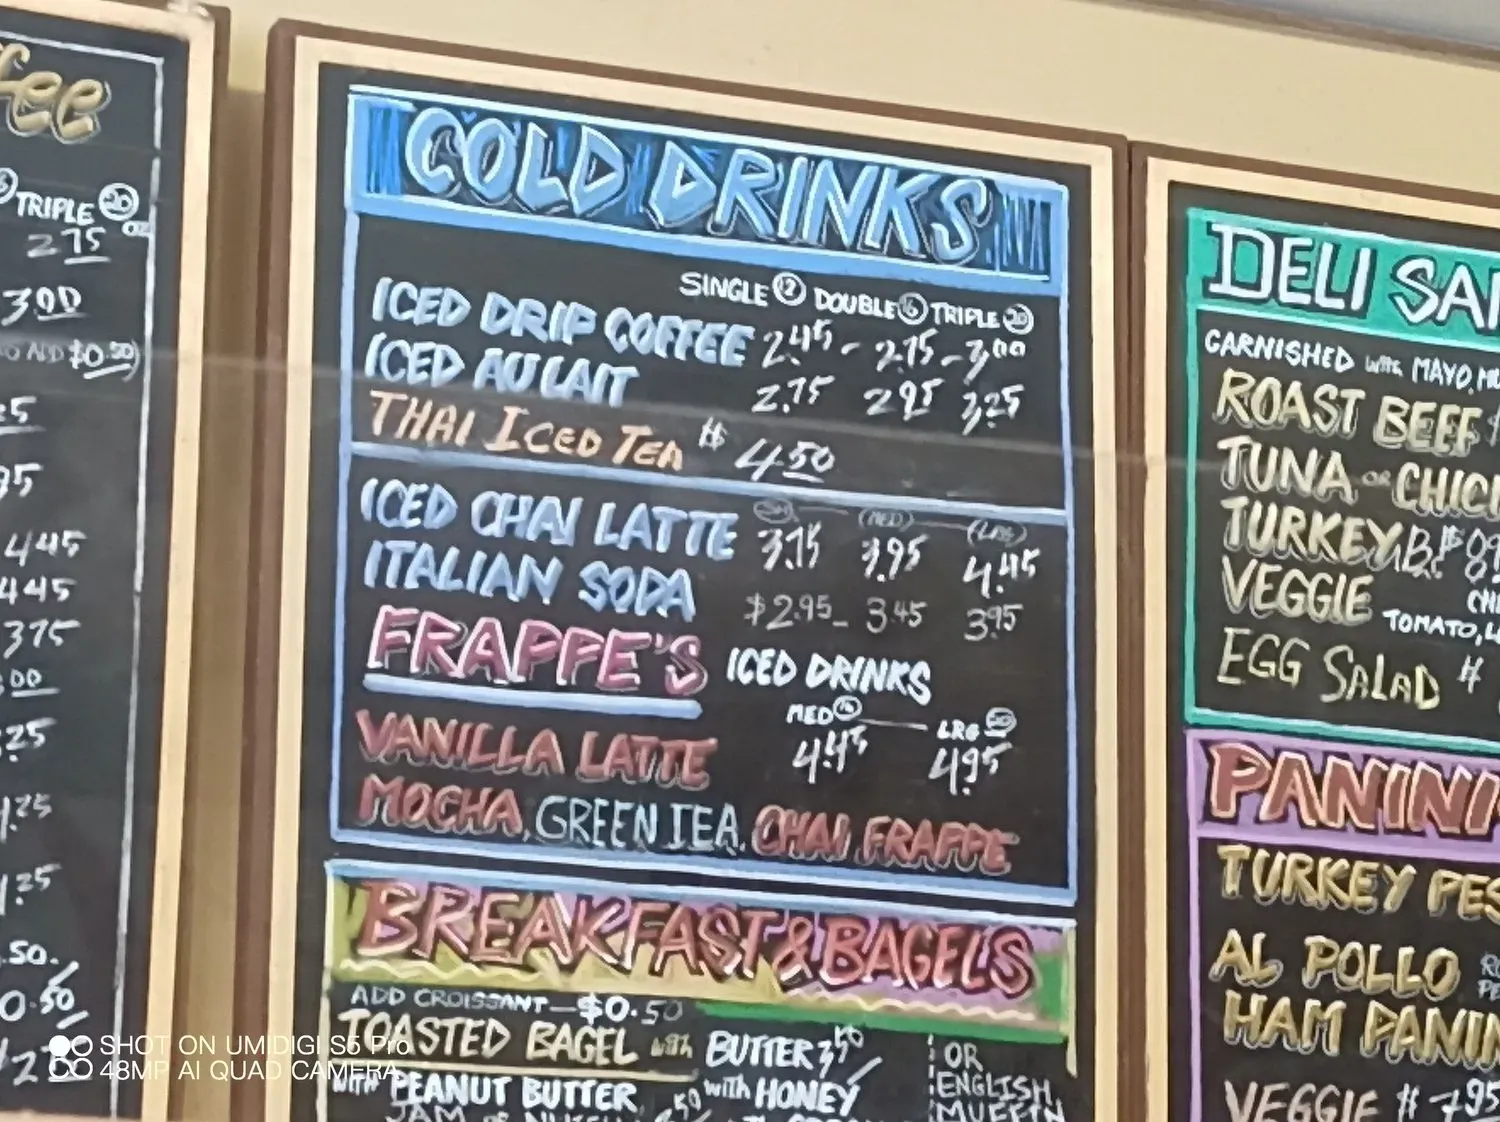 TRIPLE 20 OZ
2.75
3.00
ADD $0.50)
4.45
4.45
3.75
.00
.25
.25
.25
.50.
0.50
COLD DRINKS
SINGLE 12 DOUBLE 16 TRIPLE 20
ICED DRIP COFFEE 2.45 - 2.75 - 3.00
ICED AU LAIT 2.75 2.95 3.25
THAI ICED TEA $ 4.50
SM (MED) (LRG)
ICED CHAI LATTE 3.75 3.95 4.45
ITALIAN SODA $2.95 - 3.45 3.95
FRAPPE'S ICED DRINKS
MED 16 LRG 20
VANILLA LATTE 4.45 4.95
MOCHA, GREEN TEA, CHAI FRAPPE
BREAKFAST & BAGELS
ADD CROISSANT—$0.50
TOASTED BAGEL with BUTTER 3.50
OR
WITH PEANUT BUTTER with HONEY
ENGLISH
MUFFIN
JAM
DELI SA
GARNISHED with MAYO,
ROAST BEEF
TUNA or CHIC
TURKEY
VEGGIE
TOMATO,
EGG SALAD $
PANINI
TURKEY PES
AL POLLO
HAM PANIN
VEGGIE $ 7.95
SHOT ON UMIDIGI S5 Pro
48MP AI QUAD CAMERA